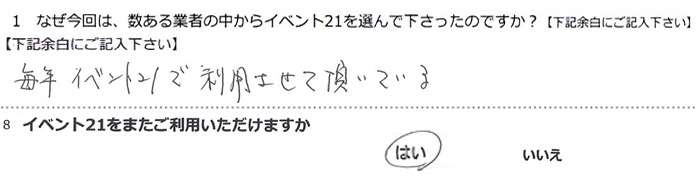 1 なぜ今回は、数ある業者の中からイベント21を選んで下さったのですか？【下記余白にご記入下さい】
【下記余白にご記入下さい】
毎年 イベント21で利用させて頂いている
8 イベント21をまたご利用いただけますか
はい いいえ